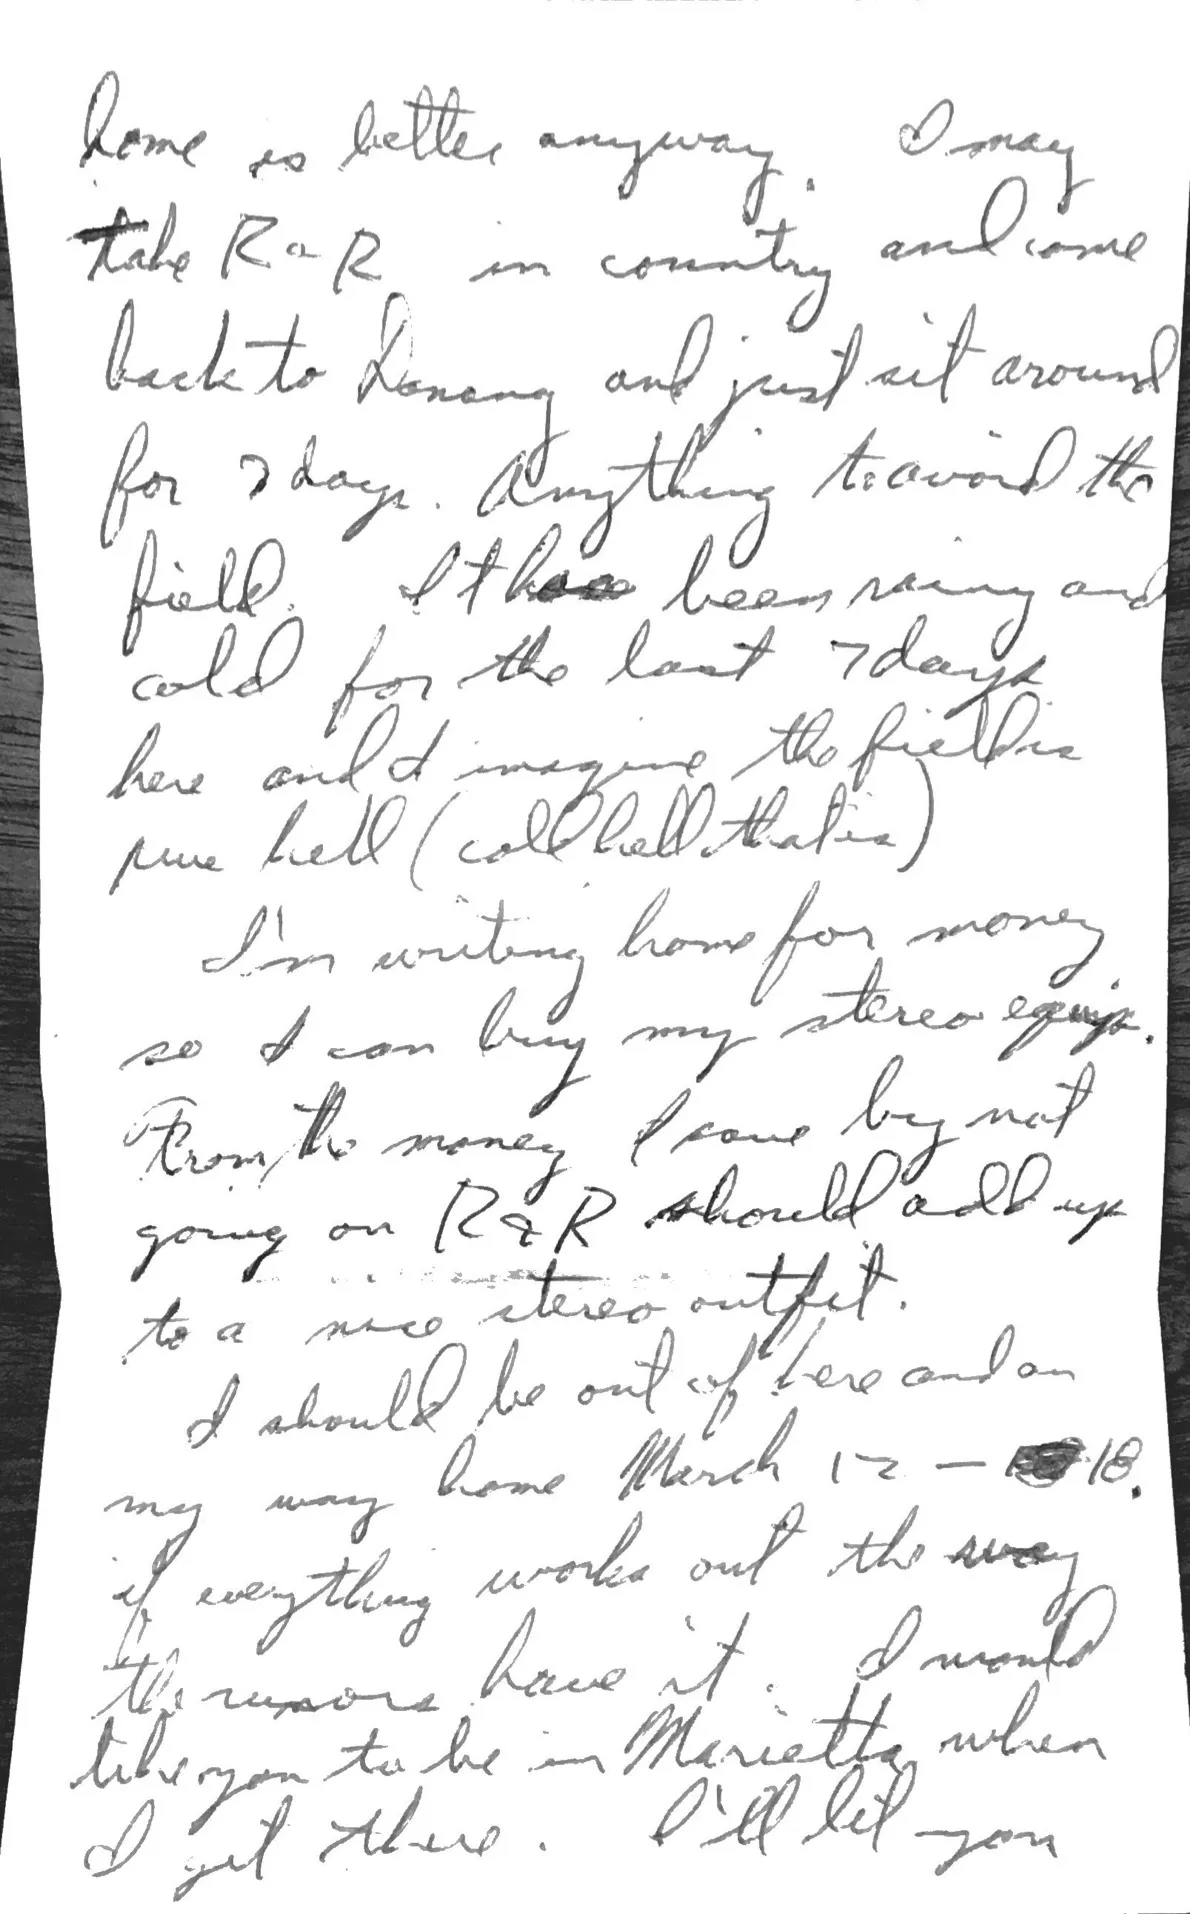 home is better anyway. I may
take R & R in country and come
back to Danang and just sit around
for 7 days. Anything to avoid the
field. It has been rainy and
cold for the last 7 days
here and I imagine the field is
pure hell (cold hell that is)
I'm writing home for money
so I can buy my stereo equip.
From the money I save by not
going on R & R should add up
to a nice stereo outfit.
I should be out of here and on
my way home March 12 - 18.
if everything works out the way
the rumors have it. I would
like you to be in Marietta when
I get there. I'll let you